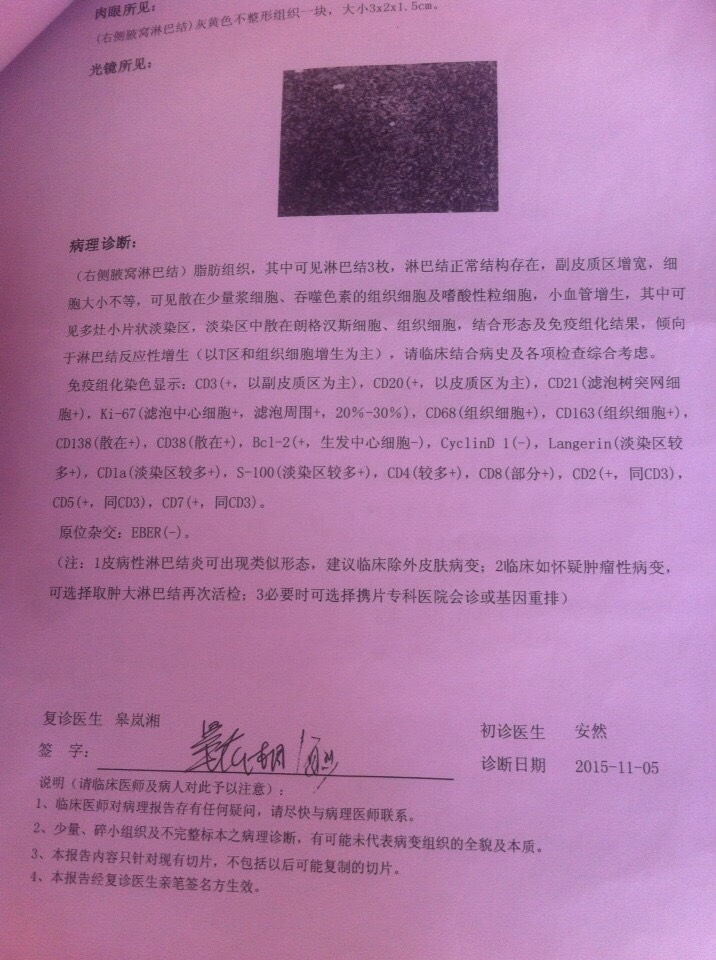 肉眼所见：
(右侧腋窝淋巴结)灰黄色不整形组织一块，大小3x2x1.5cm。
光镜所见：
病理诊断：
（右侧腋窝淋巴结）脂肪组织，其中可见淋巴结3枚，淋巴结正常结构存在，副皮质区增宽，细
胞大小不等，可见散在少量浆细胞、吞噬色素的组织细胞及嗜酸性粒细胞，小血管增生，其中可
见多灶小片状淡染区，淡染区中散在朗格汉斯细胞、组织细胞，结合形态及免疫组化结果，倾向
于淋巴结反应性增生（以T区和组织细胞增生为主），请临床结合病史及各项检查综合考虑。
免疫组化染色显示：CD3(+，以副皮质区为主)，CD20(+，以皮质区为主)，CD21(滤泡树突网细
胞+)，Ki-67(滤泡中心细胞+，滤泡周围+，20%-30%)，CD68(组织细胞+)，CD163(组织细胞+)，
CD138(散在+)，CD38(散在+)，Bcl-2(+，生发中心细胞-)，CyclinD 1(-)，Langerin(淡染区较
多+)，CD1a(淡染区较多+)，S-100(淡染区较多+)，CD4(较多+)，CD8(部分+)，CD2(+，同CD3)，
CD5(+，同CD3)，CD7(+，同CD3)。
原位杂交：EBER(-)。
（注：1皮病性淋巴结炎可出现类似形态，建议临床除外皮肤病变；2临床如怀疑肿瘤性病变，
可选择取肿大淋巴结再次活检；3必要时可选择携片专科医院会诊或基因重排）
复诊医生 皋岚湘
初诊医生 安然
签 字：
诊断日期 2015-11-05
说明（请临床医师及病人对此予以注意）：
1、临床医师对病理报告存有任何疑问，请尽快与病理医师联系。
2、少量、碎小组织及不完整标本之病理诊断，有可能未代表病变组织的全貌及本质。
3、本报告内容只针对现有切片，不包括以后可能复制的切片。
4、本报告经复诊医生亲笔签名方生效。